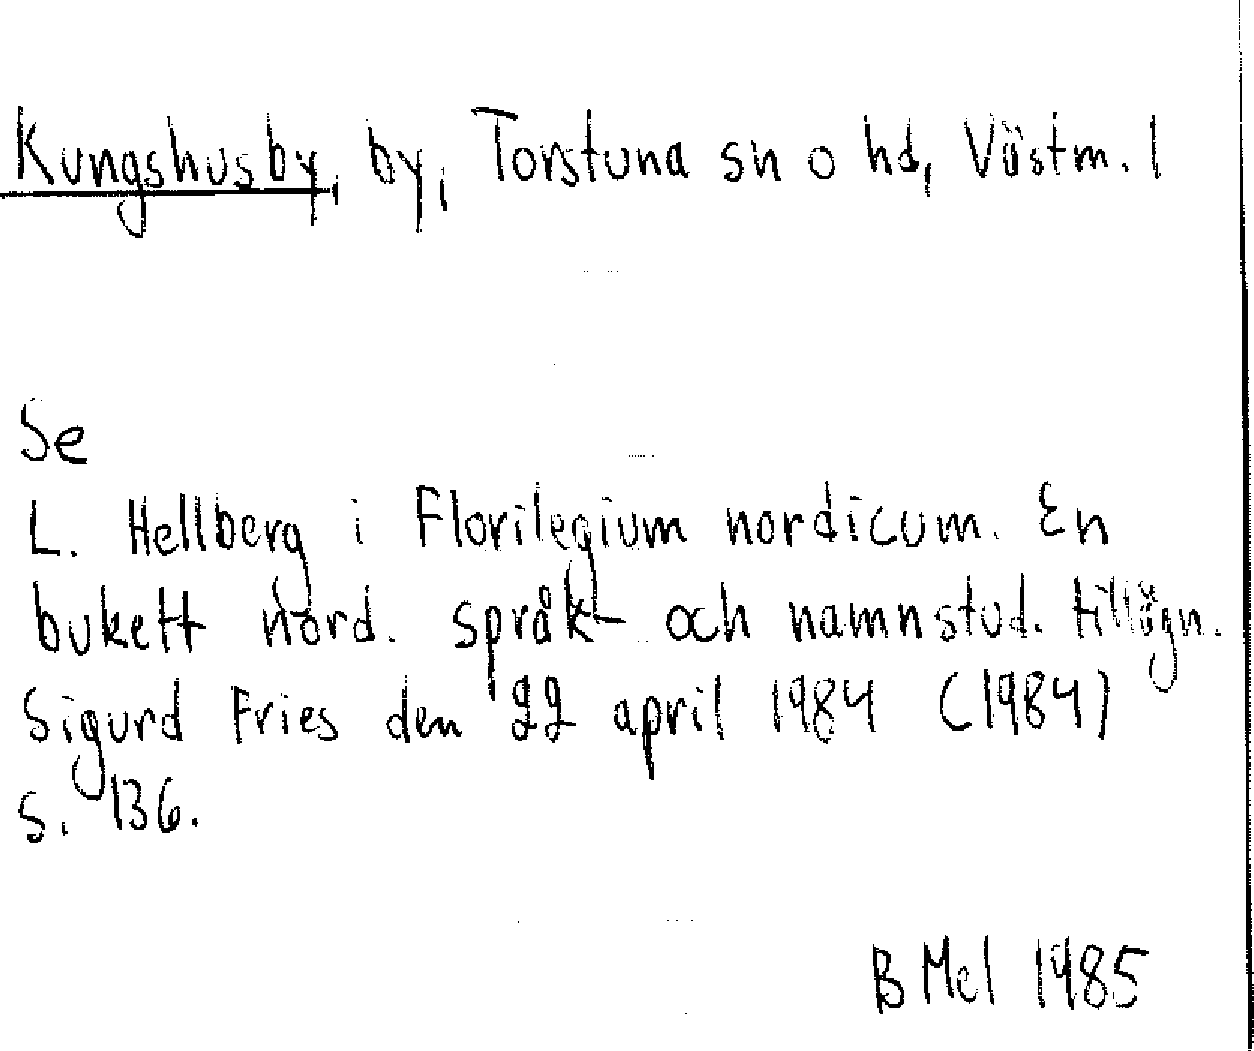 Kungshusby, by, Torstuna sn o hd, Västm. l
Se
L. Hellberg i Florilegium nordicum. En
bukett nord. språk- och namnstud. tillägn.
Sigurd Fries den 22 april 1984 (1984)
s. 136.
B Mel 1985